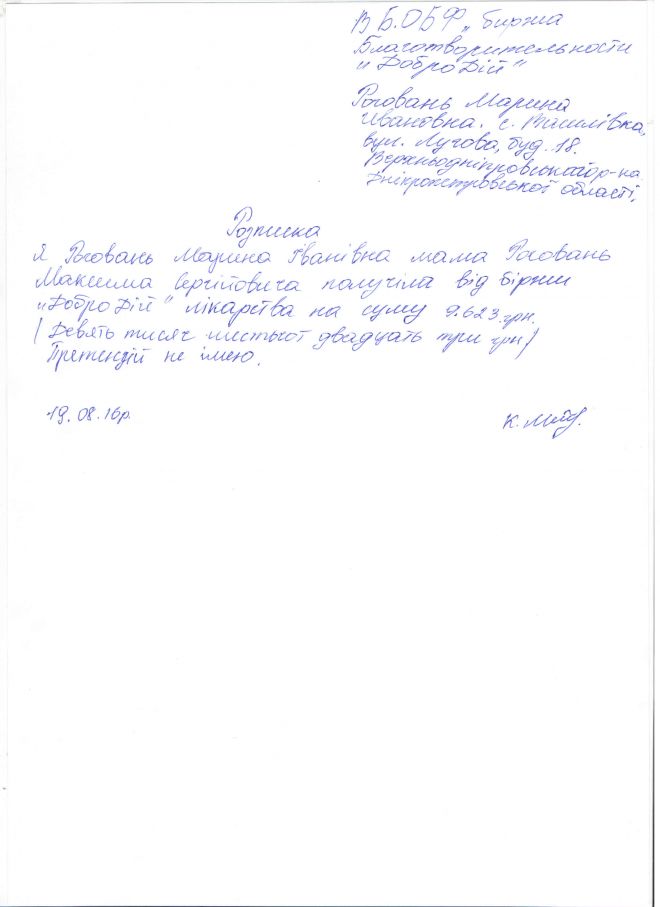 В Б.ОБФ „биржа
Благотворительности
"ДоброДій"
Роговань Марина
Ивановна. с. Василівка,
вул. Лугова, буд. 18.
Верхньодніпровського р-на
Дніпропетровської області.
Розписка
Я Роговань Марина Іванівна мама Роговань
Максима Сергійовича получіла від біржи
"ДоброДій" лікарства на суму 9.623 грн.
(Девять тисяч шистьсот двадцать три грн)
Претензій не імею.
19.08.16р.